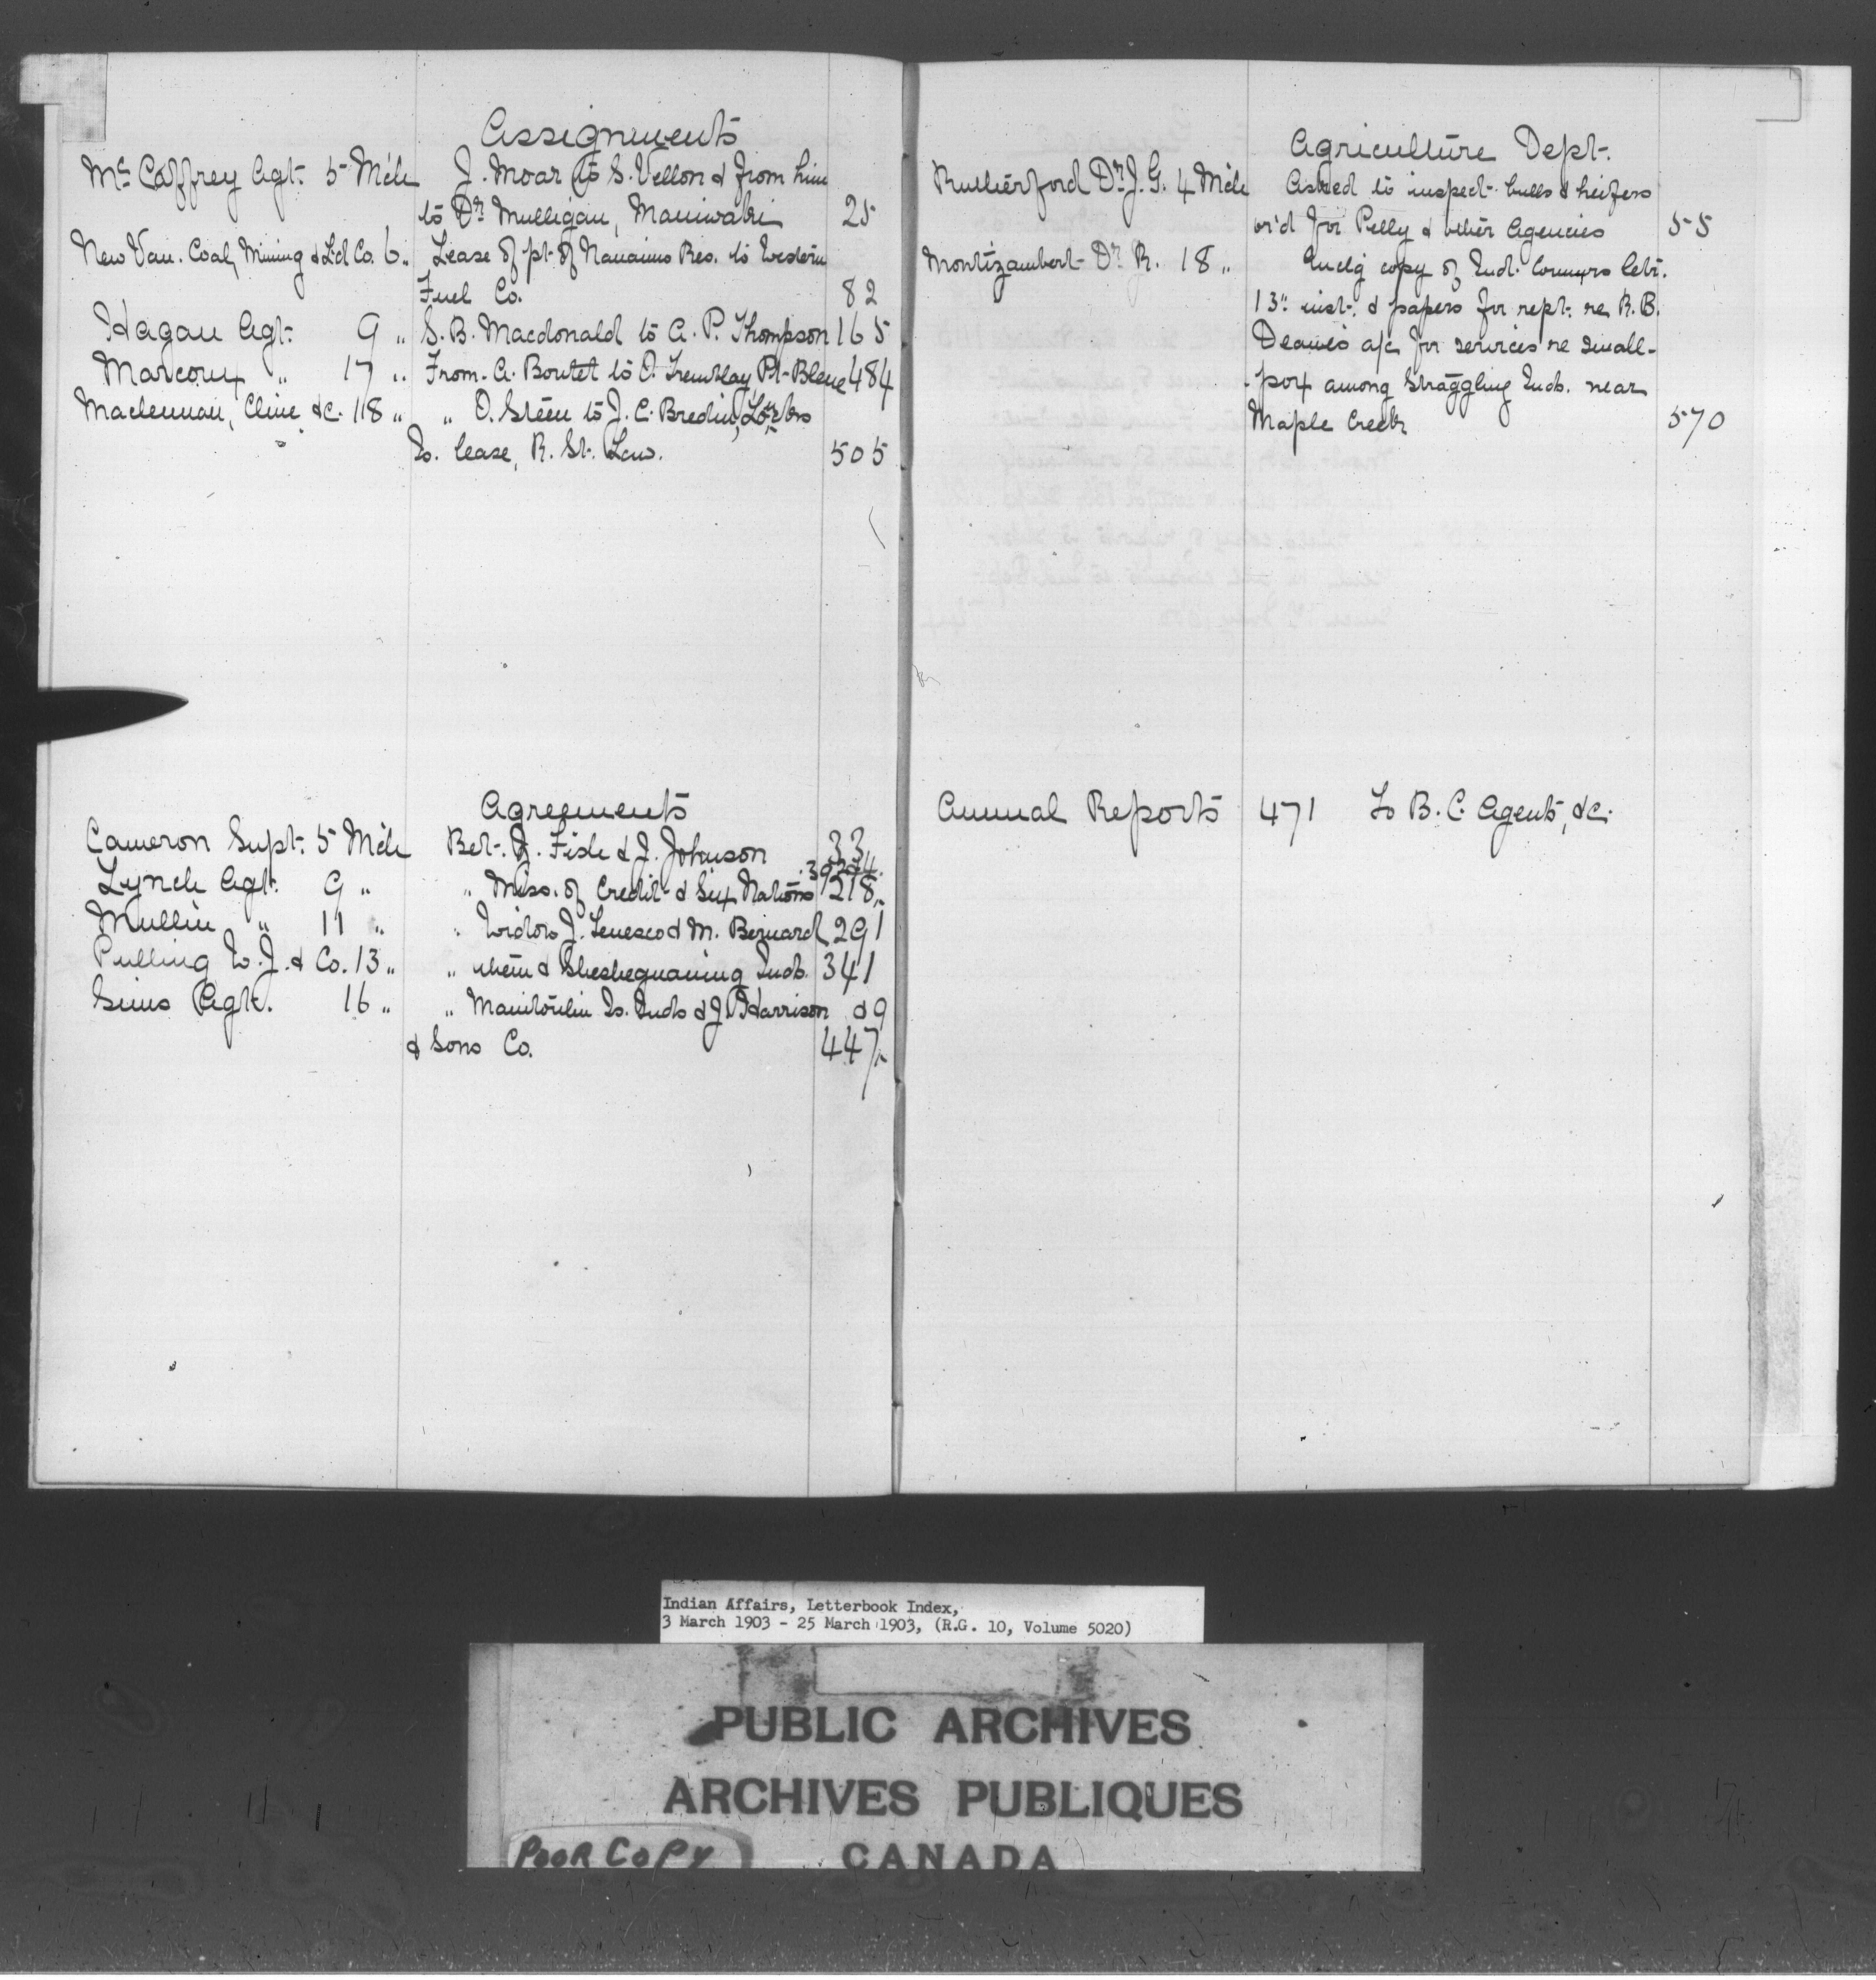 Assignments
McCaffrey Agt. 5 Mch J. Moar to S. Vellon & from him
to Dr Mulligan, Maniwaki 25
New Van. Coal, Mining & Ld Co. 6 " Lease of pt. of Nanaimo Res. to Western
Fuel Co. 82
Hagan Agt. 9 " S. B. Macdonald to A. P. Thompson 165
Marcoux " 17 " From A. Boutet to O. Tremblay Pt. Bleue 484
Maclennan, Cline &c. 18 " " O. Steen to J. C. Bredin,
Is. lease, R. St. Law. 505
Agreements
Cameron Supt. 5 Mch Bet. J. Fish & J. Johnson 33
Lynch Agt. 9 " " Miss. of Credit & Six Nations 218
Mullin " 11 " " Widow J. & M. Bernard 291
Pulling W. J. & Co. 13 " " them & Sheshegwaning Inds. 341
Sims Agt. 16 " " Manitoulin Is. Inds & J. Harrison & 9
& Sons Co. 447
Agriculture Dept.
Rutherford Dr J. G. 4 Mch Asked to inspect bulls & heifers
or'd for Pelly & other Agencies 55
Montizambert Dr R. 18 " Enclg copy of Ind. Commrs letr.
13" inst. & papers for rept. re R. B.
Deane's a/c for services re small-
-pox among straggling Inds. near
Maple Creek 570
Annual Reports 471 To B. C. Agents, &c.
Indian Affairs, Letterbook Index,
3 March 1903 - 25 March 1903, (R.G. 10, Volume 5020)
PUBLIC ARCHIVES
ARCHIVES PUBLIQUES
CANADA
POOR COPY